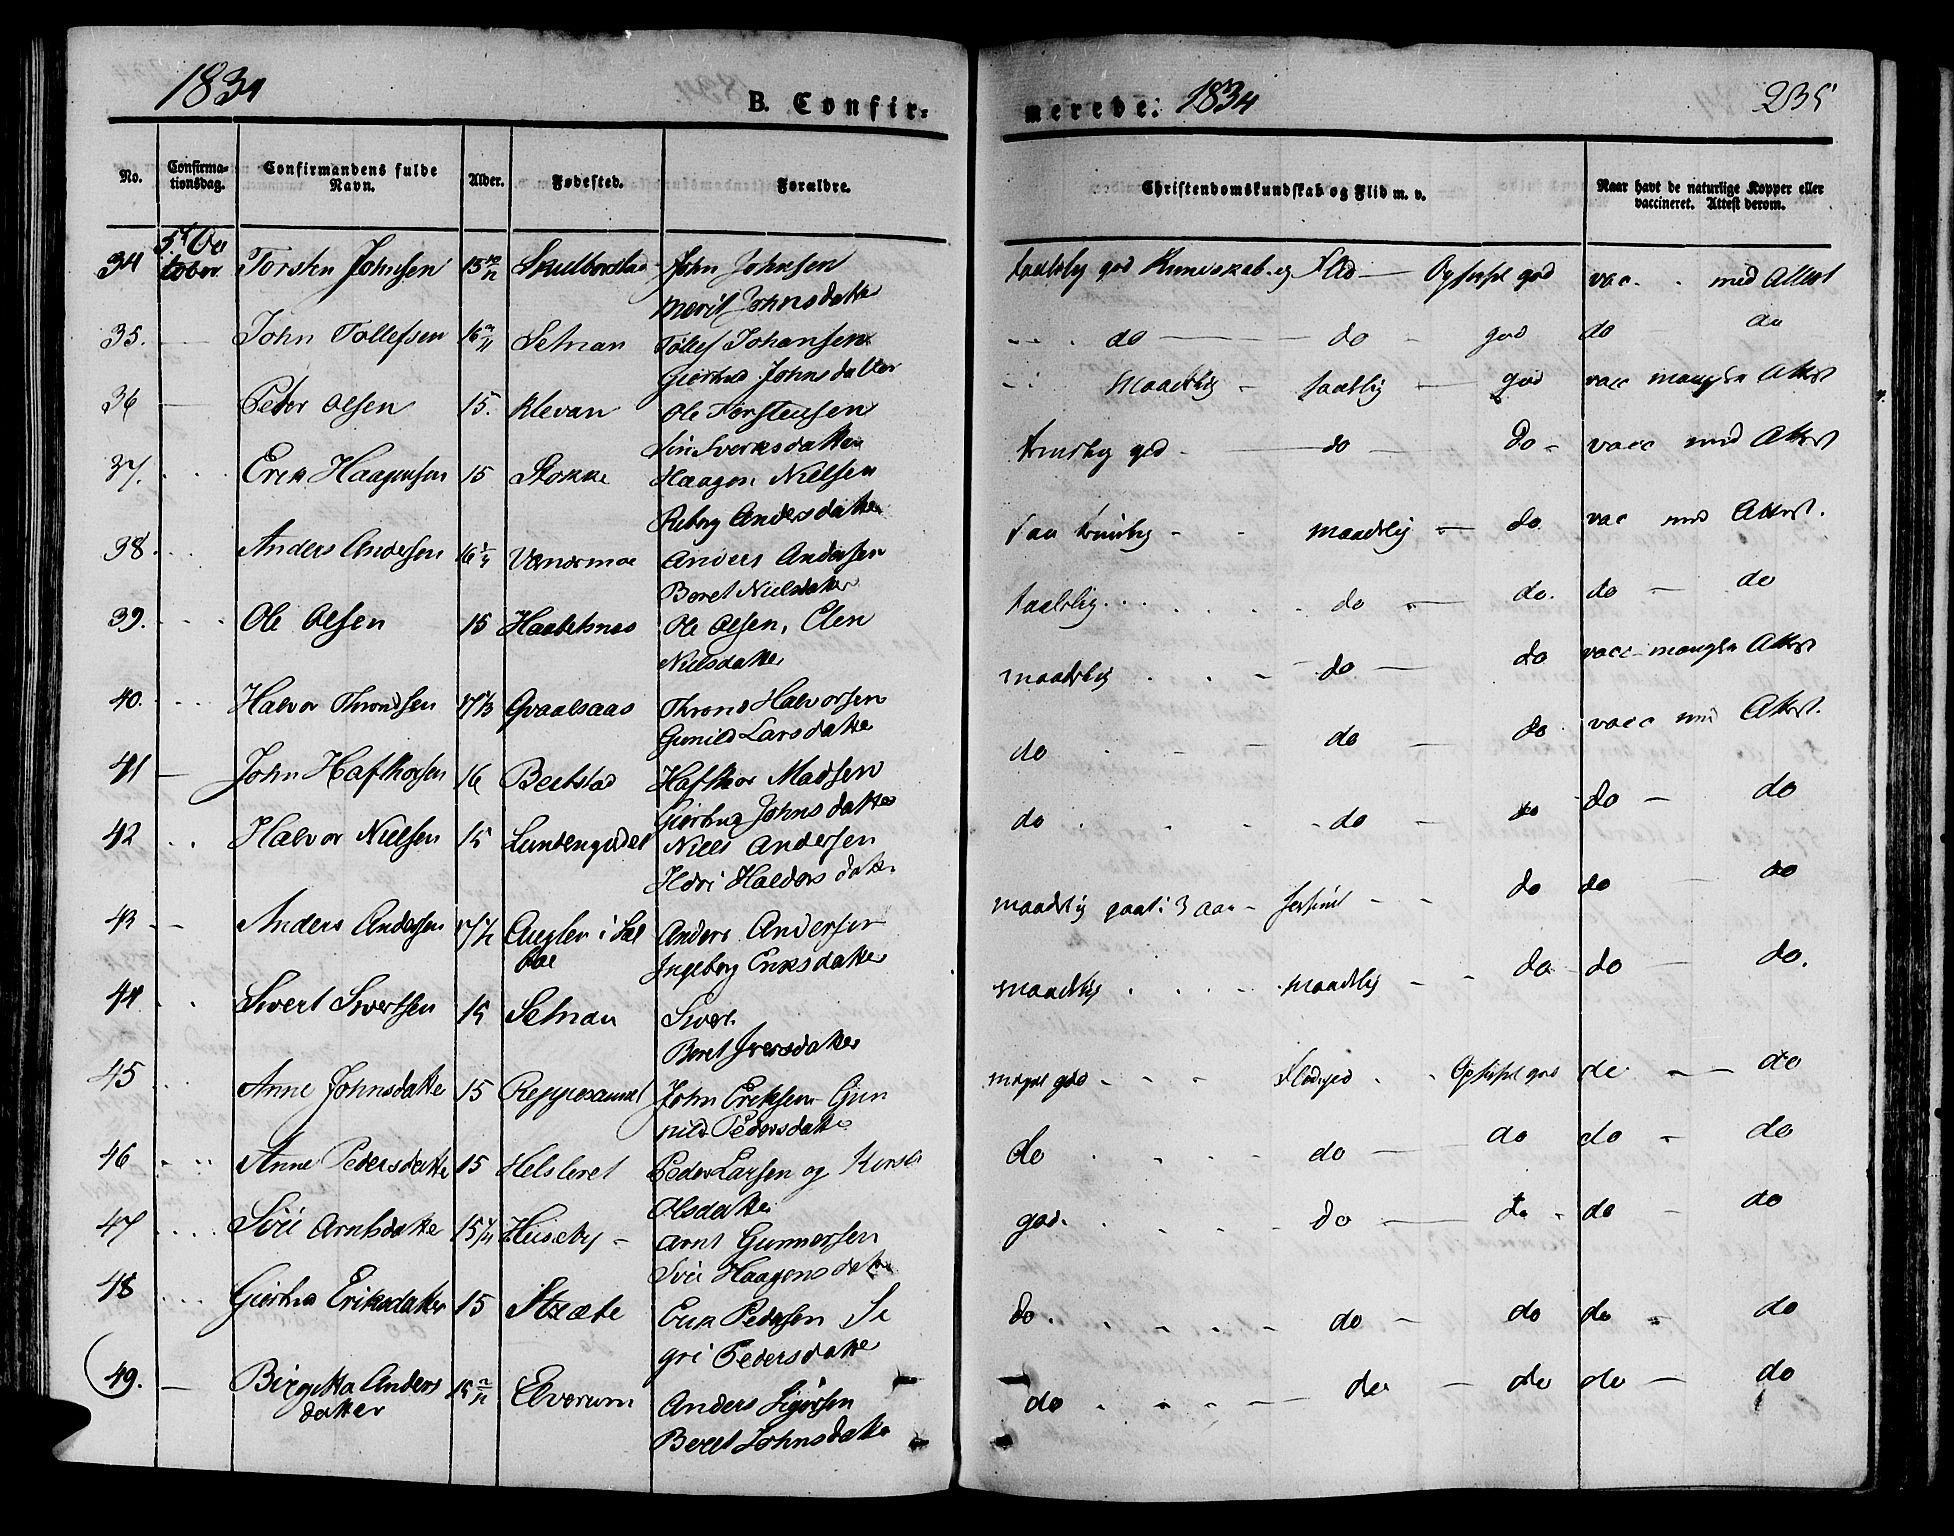 1834
B. Confir-
merede. 1834
235
No.
Confirma-
tionsdag.
Confirmandens fulde
Navn.
Alder.
Fødested.
Forældre.
Christendomskundskab og Flid m. v.
Naar havt de naturlige Kopper eller
vaccineret. Attest derom.
34 5t Oc
tober Torsten Johnsen 15 10/12 John Johnsen
Marit Johnsdatter
taalelig god Kundskab og Flid — Opførsel god vac. med Attest
35. — John Tollefsen 16 Selnæs Tollef Johansen
Giertrud Johnsdatter
do — do — god do do
36 — Peder Olsen 15. Klevan Ole Torstensen
Siri Sivertsdatter
maadelig — taalelig — god vacc mangler Attest
37. Erik Haagensen 15 Stokke Haagen Nielsen
Reberg Andersdatter
temelig god — do — do vacc med Attest
38. Anders Andersen 16 Anders Andersen
Beret Nielsdatter
saa temelig — maadelig — do vac med Attest.
39. Ole Olsen 15 Ole Olsen, Elen
Nielsdatter
taalelig — do — do. do — do
40. Halvor Throndsen 17 1/2 Thrond Halvorsen
Gunild Larsdatter
maadelig — do — do vacc mangler Attest
41 — John Hafthorsen 16 Hafthor Madsen
Giertrud Johnsdatter
do — do — do vacc med Attest.
42 Halvor Nielsen 15 Niels Andersen
Ildri Haldorsdatter
do — do — do do — do
43 — Anders Andersen 17 1/2 Anders Andersen
Ingeborg Eriksdatter
maadelig gaaet i 3 Aar — do do — do
44 Sivert Sivertsen 15 Selnæs Sivert
Beret Iversdatter
maadelig — maadelig — do do — do.
45 Anne Johnsdatter 15 John Eriksen Gun
nild Pedersdatter
meget god — Flid god Opførsel god do — do
46 Anne Pedersdatter 15 Peder Larsen og
Olsdatter
do — do — do do — do
47 Siri Arntsdatter 15 1/4 Huseby — Arnt Gunnersen
Siri Haagensdatter
god. — do — do do — do
48 Giertrud Eriksdatter 15 Stræte Erik Pedersen Si
gri Pedersdatter
do. — do — do do — do
49. — Birgitta Anders
datter 15 Elverum Anders
Beret Johnsdatter
do — do — do do — do